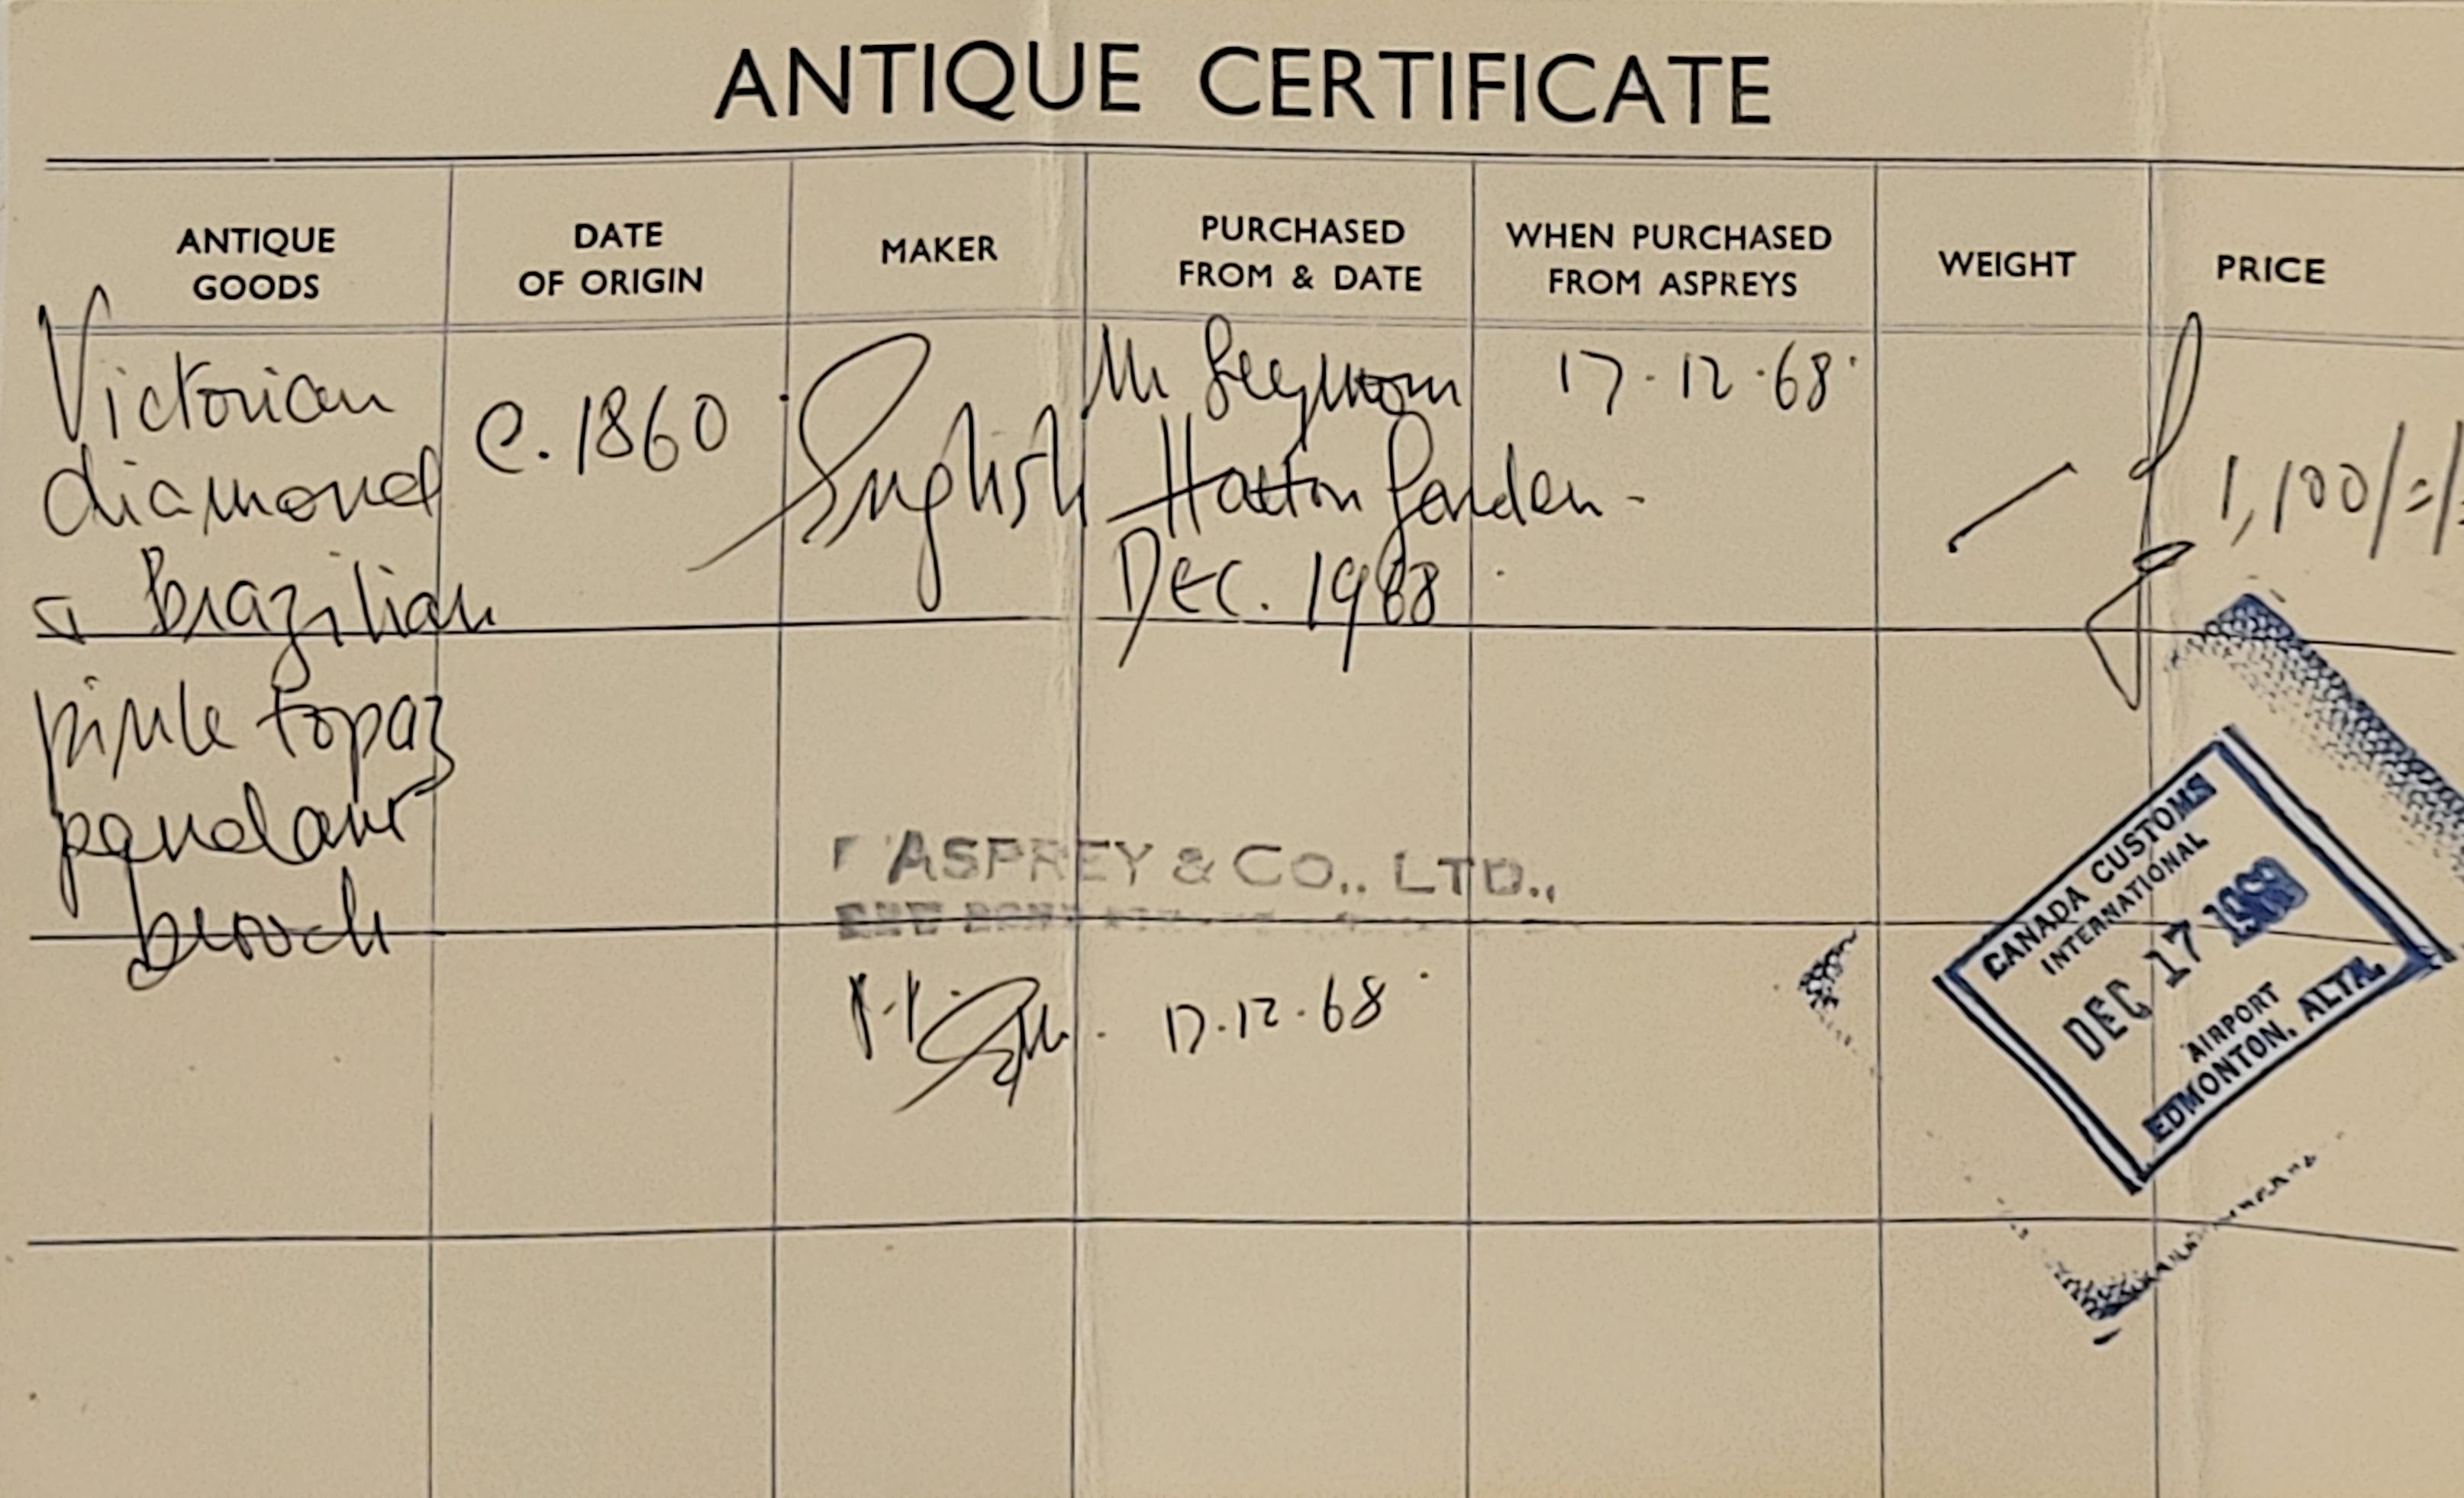 ANTIQUE CERTIFICATE
ANTIQUE
GOODS
DATE
OF ORIGIN
MAKER
PURCHASED
FROM & DATE
WHEN PURCHASED
FROM ASPREYS
WEIGHT
PRICE
Victorian
diamond
& Brazilian
pink topaz
pendant
brooch
c. 1860
English
Hatton Garden -
Dec. 1968
17.12.68
£ 1,100/=/
ASPREY & CO., LTD.,
17.12.68
CANADA CUSTOMS
INTERNATIONAL
DEC 17
AIRPORT
EDMONTON, ALTA.